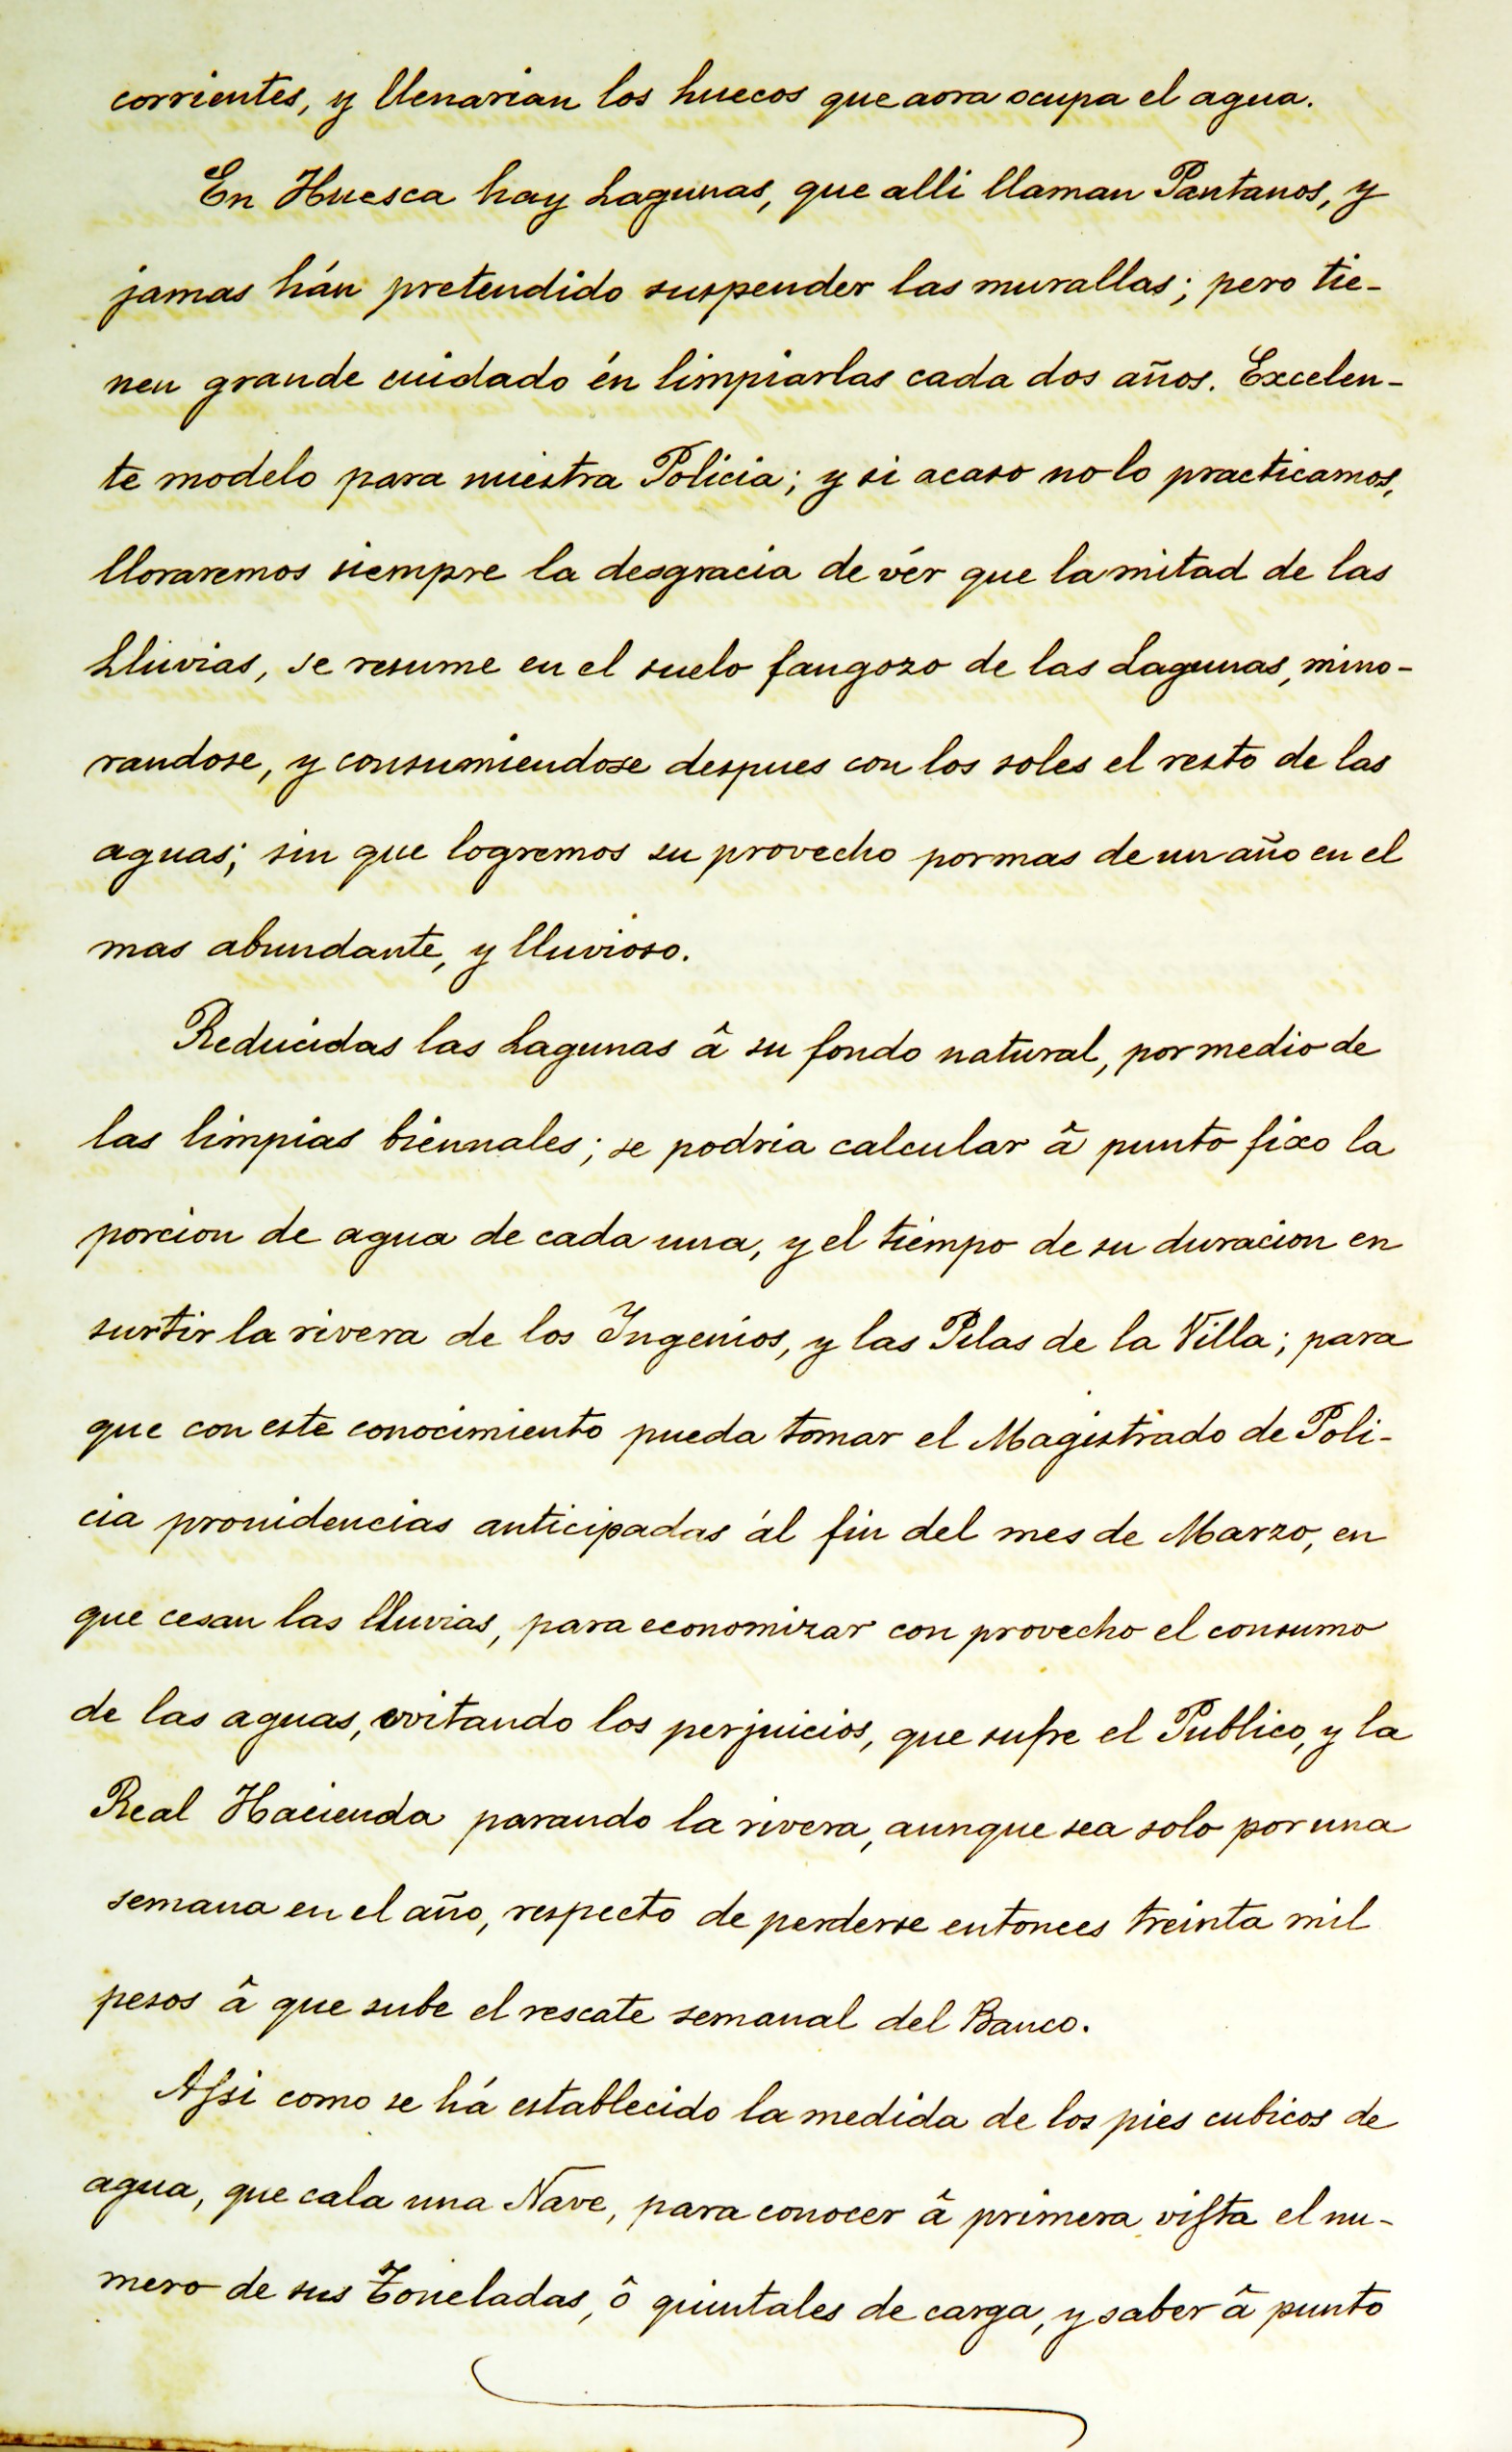 corrientes, y llenarian los huecos que aora ocupa el agua.
En Huesca hay Lagunas, que alli llaman Pantanos, y
jamas hán pretendido suspender las murallas; pero tie-
nen grande cuidado én limpiarlas cada dos años. Excelen-
te modelo para nuestra Policia; y si acaso no lo practicamos,
lloraremos siempre la desgracia de vér que la mitad de las
Lluvias, se resume en el suelo fangozo de las Lagunas, mino-
randose, y consumiendose despues con los soles el resto de las
aguas; sin que logremos su provecho por mas de un año en el
mas abundante, y lluvioso.
Reducidas las Lagunas â su fondo natural, por medio de
las limpias biennales; se podria calcular â punto fixo la
porcion de agua de cada una, y el tiempo de su duracion en
surtir la rivera de los Ingenios, y las Pilas de la Villa; para
que con este conocimiento pueda tomar el Magistrado de Poli-
cia prouidencias anticipadas ál fin del mes de Marzo, en
que cesan las lluvias, para economizar con provecho el consumo
de las aguas, evitando los perjuicios, que sufre el Publico, y la
Real Hacienda parando la rivera, aunque sea solo por una
semana en el año, respecto de perderse entonces treinta mil
pesos â que sube el rescate semanal del Banco.
Assi como se há establecido la medida de los pies cubicos de
agua, que cala una Nave, para conocer â primera vista el nu-
mero de sus Toneladas, ô quintales de carga, y saber â punto